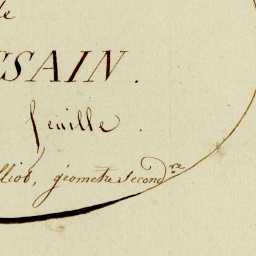 de
SSAIN.
feuille.
lliot, géometre second.re